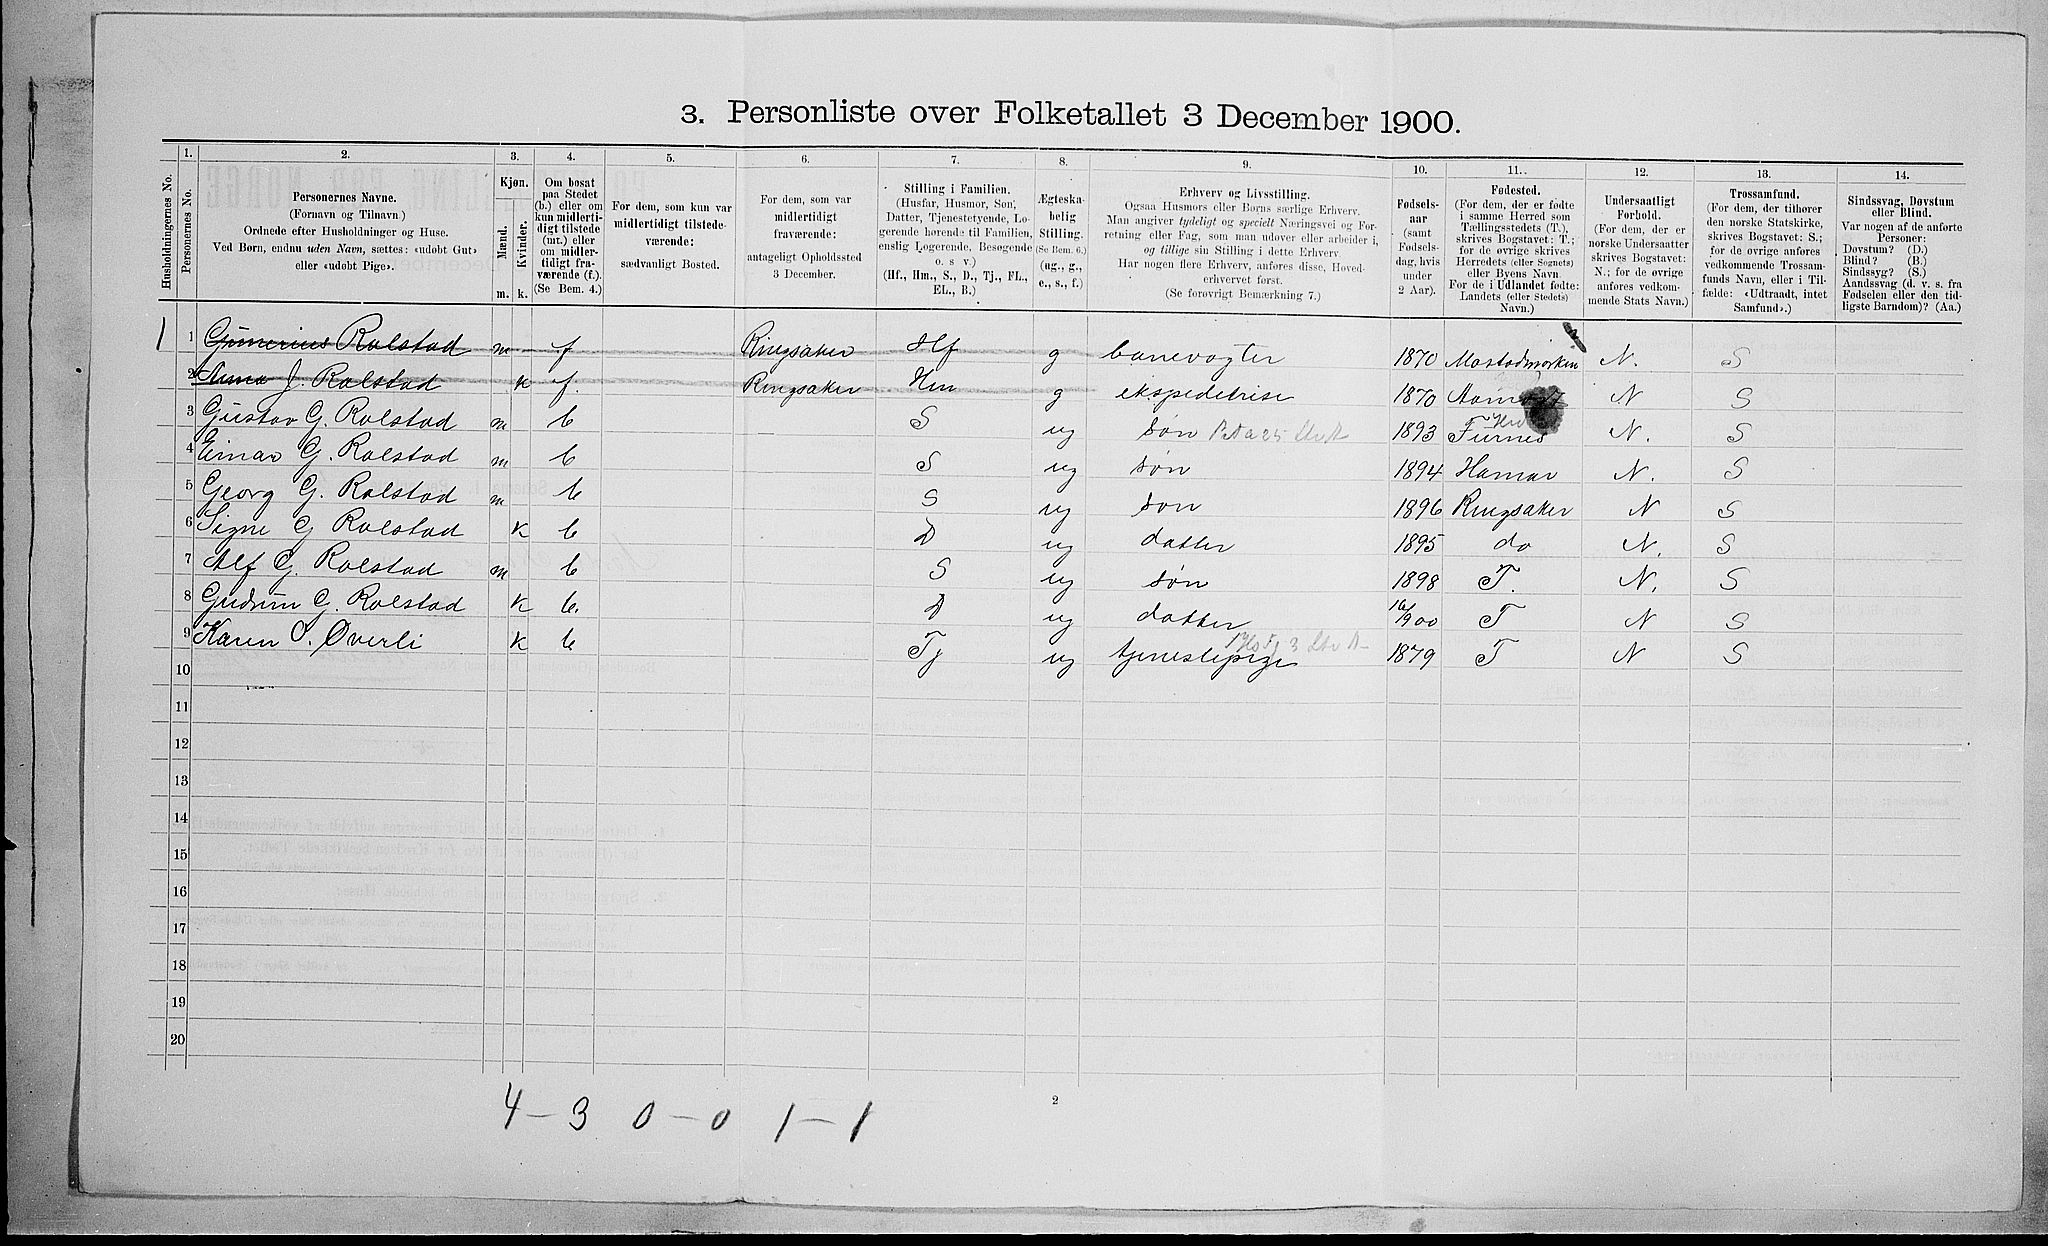 3. Personliste over Folketallet 3 December 1900.
1. 2. 3. 4. 5. 6. 7. 8. 9. 10. 11. 12. 13. 14.
Husholdningernes No.
Personernes No.
Personernes Navne.
(Fornavn og Tilnavn.)
Ordnede efter Husholdninger og Huse.
Ved Børn, endnu uden Navn, sættes: «udøbt Gut»
eller «udøbt Pige».
Kjøn.
Mænd.
Kvinder.
m. k.
Om bosat
paa Stedet
(b.) eller om
kun midlerti-
digt tilstede
(mt.) eller
om midler-
tidigt fra-
værende (f.).
(Se Bem. 4.)
For dem, som kun var
midlertidigt tilstede-
værende:
sædvanligt Bosted.
For dem, som var
midlertidigt
fraværende:
antageligt Opholdssted
3 December.
Stilling i Familien.
(Husfar, Husmor, Søn,
Datter, Tjenestetyende, Lo-
gerende hørende til Familien,
enslig Logerende, Besøgende
o. s v.)
(Hf., Hm., S., D., Tj., FL.,
EL., B.)
Ægteska-
belig
Stilling.
(Se Bem. 6.)
(ug., g.,
e., s., f.)
Erhverv og Livsstilling.
Ogsaa Husmors eller Børns særlige Erhverv.
Man angiver tydeligt og specielt Næringsvei og For-
retning eller Fag, som man udøver eller arbeider i,
og tillige sin Stilling i dette Erhverv.
Har nogen flere Erhverv, anføres disse, Hoved-
erhvervet først.
(Se forøvrigt Bemærkning 7.)
Fødsels-
aar
(samt
Fødsels-
dag, hvis
under
2 Aar).
Fødested.
(For dem, der er fødte
i samme Herred som
Tællingsstedets (T.),
skrives Bogstavet: T.;
for de øvrige skrives
Herredets (eller Sognets)
eller Byens Navn.
For de i Udlandet fødte:
Landets (eller Stedets)
Navn.)
Undersaatligt
Forhold.
(For dem, der er
norske Undersaatter
skrives Bogstavet:
N.; for de øvrige
anføres vedkom-
mende Stats Navn.)
Trossamfund.
(For dem, der tilhører
den norske Statskirke,
skrives Bogstavet: S.;
for de øvrige anføres
vedkommende Trossam-
funds Navn, eller i Til-
fælde: «Udtraadt, intet
Samfund».)
Sindssvag, Døvstum
eller Blind.
Var nogen af de anførte
Personer:
Døvstum? (D.)
Blind? (B.)
Sindssyg? (S.)
Aandssvag (d. v. s. fra
Fødselen eller den tid-
ligste Barndom)? (Aa.)
1 1 Gunerius Rolstad m f Ringsaker Hf g banevogter 1870 N. S
2 Anna J. Rolstad k f. Ringsaker Hm g ekspeditrise 1870 N S
3 Gustav G. Rolstad m b S ug søn 1893 Furnes N. S
4 Einar G. Rolstad m b S ug søn 1894 Hamar N. S
5 Georg G. Rolstad m b S ug søn 1896 Ringsaker N S
6 Signe G Rolstad k b D ug datter 1895 do N. S
7 Alf G. Rolstad m b S ug søn 1898 T. N. S
8 Gudrun G. Rolstad k b. D ug datter 900 T N S
9 Karen O. Øverli k b Tj ug tjenestepige 1879 T N S
10
11
12
13
14
15
16
17
18
19
20
4 - 3 0 - 0 1 - 1
2